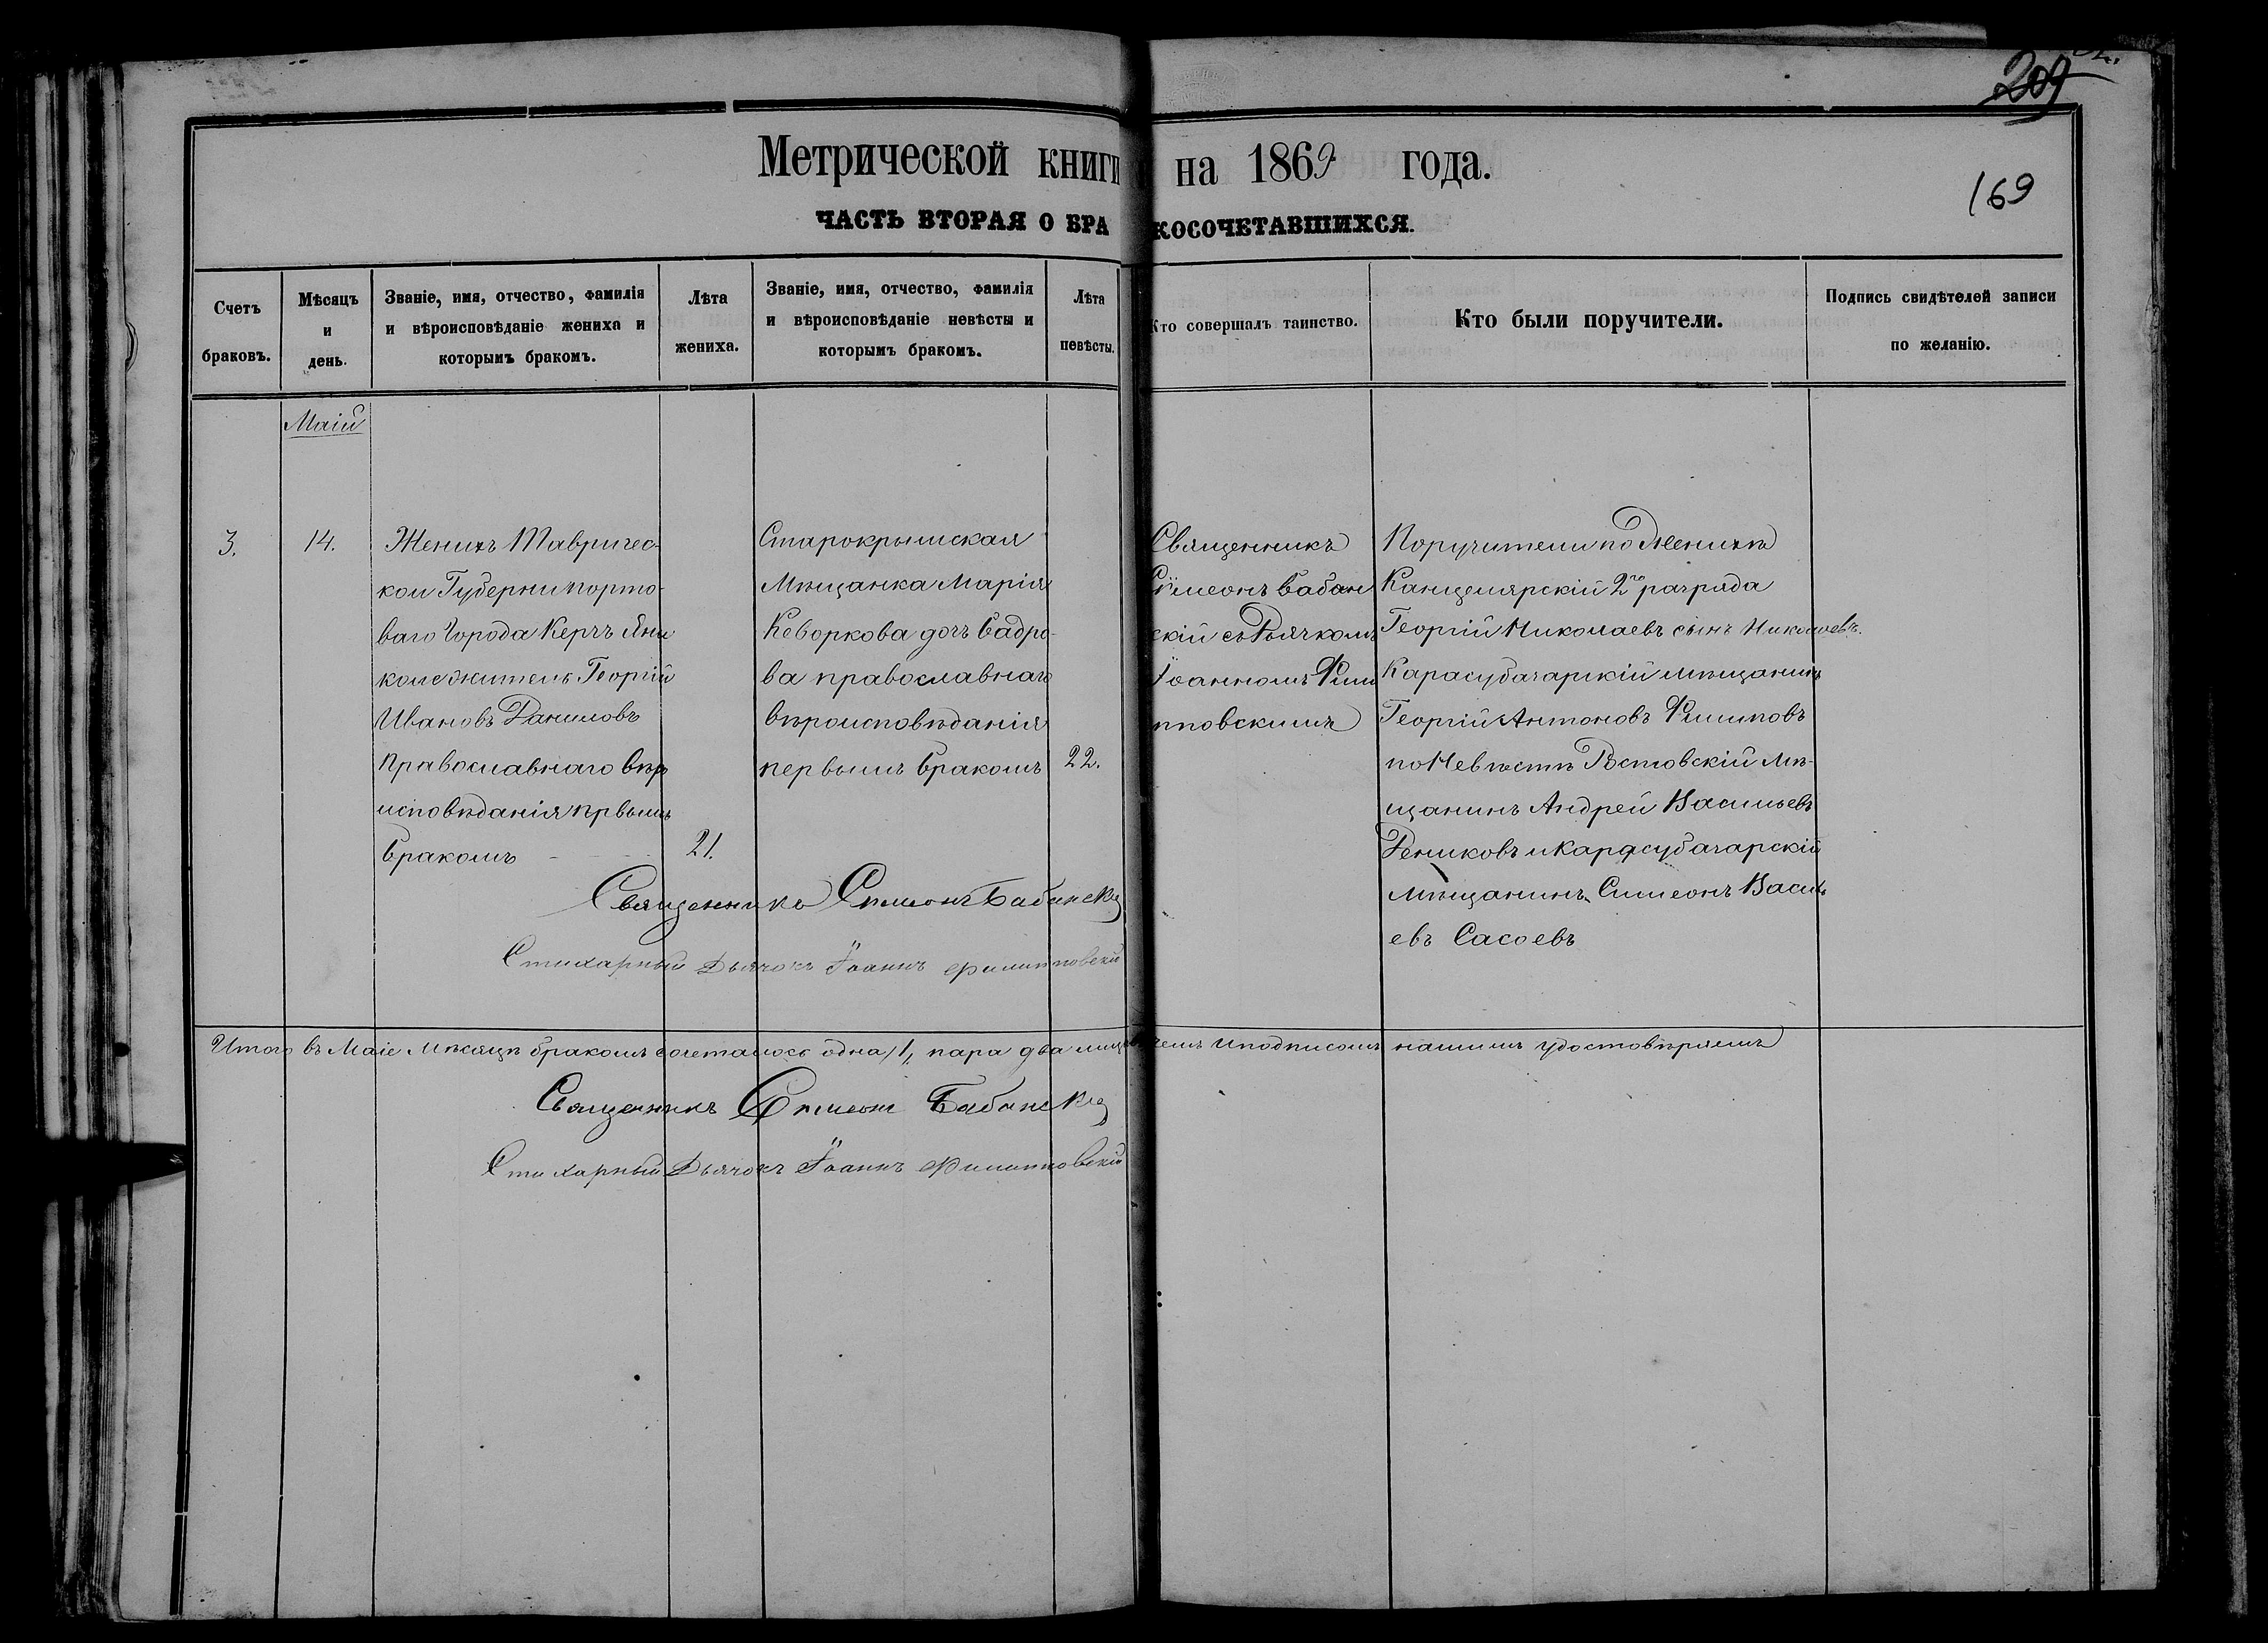 209
Метрической книги на 1869 года.
169
ЧАСТЬ ВТОРАЯ О БРАКОСОЧЕТАВШИХСЯ.
Счетъ браковъ.
Мѣсяцъ и день.
Званіе, имя, отчество, фамилія
и вѣроисповѣданіе жениха и
которымъ бракомъ.
Лѣта жениха.
Званіе, имя, отчество, фамилія
и вѣроисповѣданіе невѣсты и
которымъ бракомъ.
Лѣта невѣсты.
Кто совершалъ таинство.
Кто были поручители.
Подпись свидѣтелей записи
по желанію.
Маій
3.
14.
Женихъ Тавричес-
кои Губерни порто-
ваго города Керчъ Яни
коле житель Георгій
Ивановъ Даниловъ
Православнаго вѣро
исповѣданія првымъ
бракомъ
21.
Старокрымская
Мѣщанка Марія
Кеворкова дочъ Бадро-
ва православнаго
вѣроисповѣданія
первымъ бракомъ
22.
Священникъ
Сѵмеонъ Бабан
скій съ Дьячкомъ
Іоанномъ Фили
пповскимъ
Поручители по Женихѣ
Канцелярскій 2го разряда
Георгій Николаевъ сынъ Николаевъ.
Карасубазарскій мѣщанинъ
Георгій Антоновъ Филиповъ
по Невѣстѣ Ростовскій мѣ-
щанинъ Андрей Васильевъ
Рениковъ и Карасубазарскій
мѣщанинъ Симеонъ Василь
евъ Сасоевъ
Священникъ Симеонъ Бабанскій
Стихарный Дьячокъ Іоаннъ Филипповскій
Итого въ Маіе мѣсяцѣ бракомъ сочеталось одна /1, пара два лица въ чемъ и подписомъ нашимъ удостовѣряемъ
Священникъ Симеонъ Бабанскій
Стихарный Дьячокъ Іоаннъ Филипповскій